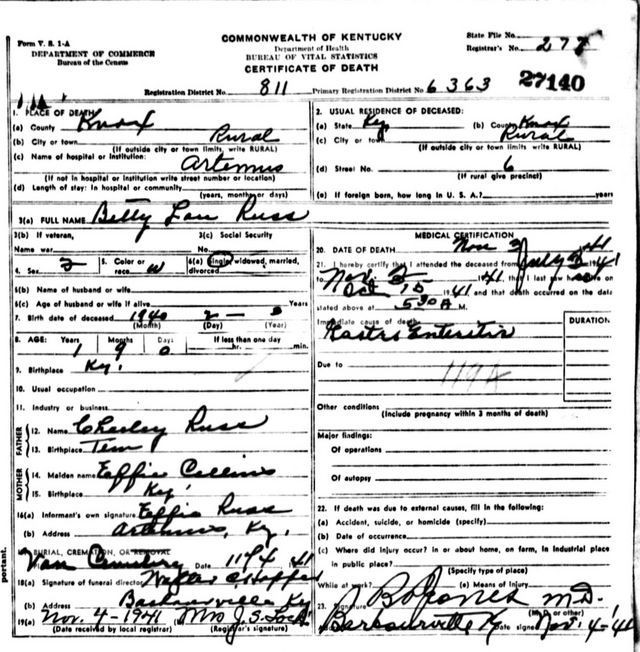 Form V. S. 1-A
DEPARTMENT OF COMMERCE
Bureau of the Census
COMMONWEALTH OF KENTUCKY
Department of Health
BUREAU OF VITAL STATISTICS
CERTIFICATE OF DEATH
State File No.
Registrar's No. 277
27140
Registration District No. 811 Primary Registration District No. 6363
1. PLACE OF DEATH
(a) County Knox
(b) City or town Rural
(If outside city or town limits, write RURAL)
(c) Name of hospital or institution: Artemus
(If not in hospital or institution write street number or location)
(d) Length of stay: In hospital or community
(years, months or days)
2. USUAL RESIDENCE OF DECEASED:
(a) State Ky (b) County Knox
(c) City or town Rural
(If outside city or town limits write RURAL)
(d) Street No. 6
(If rural give precinct)
(e) If foreign born, how long in U. S. A.? years
3(a) FULL NAME Betty Lou Russ
3(b) If veteran, 3(c) Social Security
Name war No.
4. Sex 5. Color or race W 6(a) Single, widowed, married, divorced
6(b) Name of husband or wife
6(c) Age of husband or wife if alive Years
7. Birth date of deceased 1940 2
(Month) (Day) (Year)
8. AGE: Years Months Days If less than one day
1 9 0 hr. min.
9. Birthplace Ky.
10. Usual occupation
11. Industry or business
FATHER
12. Name Chesley Russ
13. Birthplace Tenn
MOTHER
14. Maiden name Effie Collins
15. Birthplace Ky
16(a) Informant's own signature Effie Russ
(b) Address Artemus, Ky.
BURIAL, CREMATION, OR REMOVAL
Cemetery Date 11 4 41
18(a) Signature of funeral director
(b) Address Barbourville Ky
19(a) Nov. 4-1941 Mrs J. S. Lock
(Date received by local registrar) (Registrar's signature)
portant.
MEDICAL CERTIFICATION
20. DATE OF DEATH Nov 41
21. I hereby certify that I attended the deceased from July 41
to Nov. 2 1941 that I last saw
Oct 15 1941 and that death occurred on the date
stated above at 530 A M.
Immediate cause of death DURATION
Gastro Enteritis
Due to
119A
Other conditions
(Include pregnancy within 3 months of death)
Major findings:
Of operations
Of autopsy
22. If death was due to external causes, fill in the following:
(a) Accident, suicide, or homicide (specify)
(b) Date of occurrence
(c) Where did injury occur? In or about home, on farm, in industrial place
in public place?
(Specify type of place)
While at work? (e) Means of injury
23. Signature Jones M.D.
(M. D. or other)
Barbourville Ky Date signed Nov. 4-41